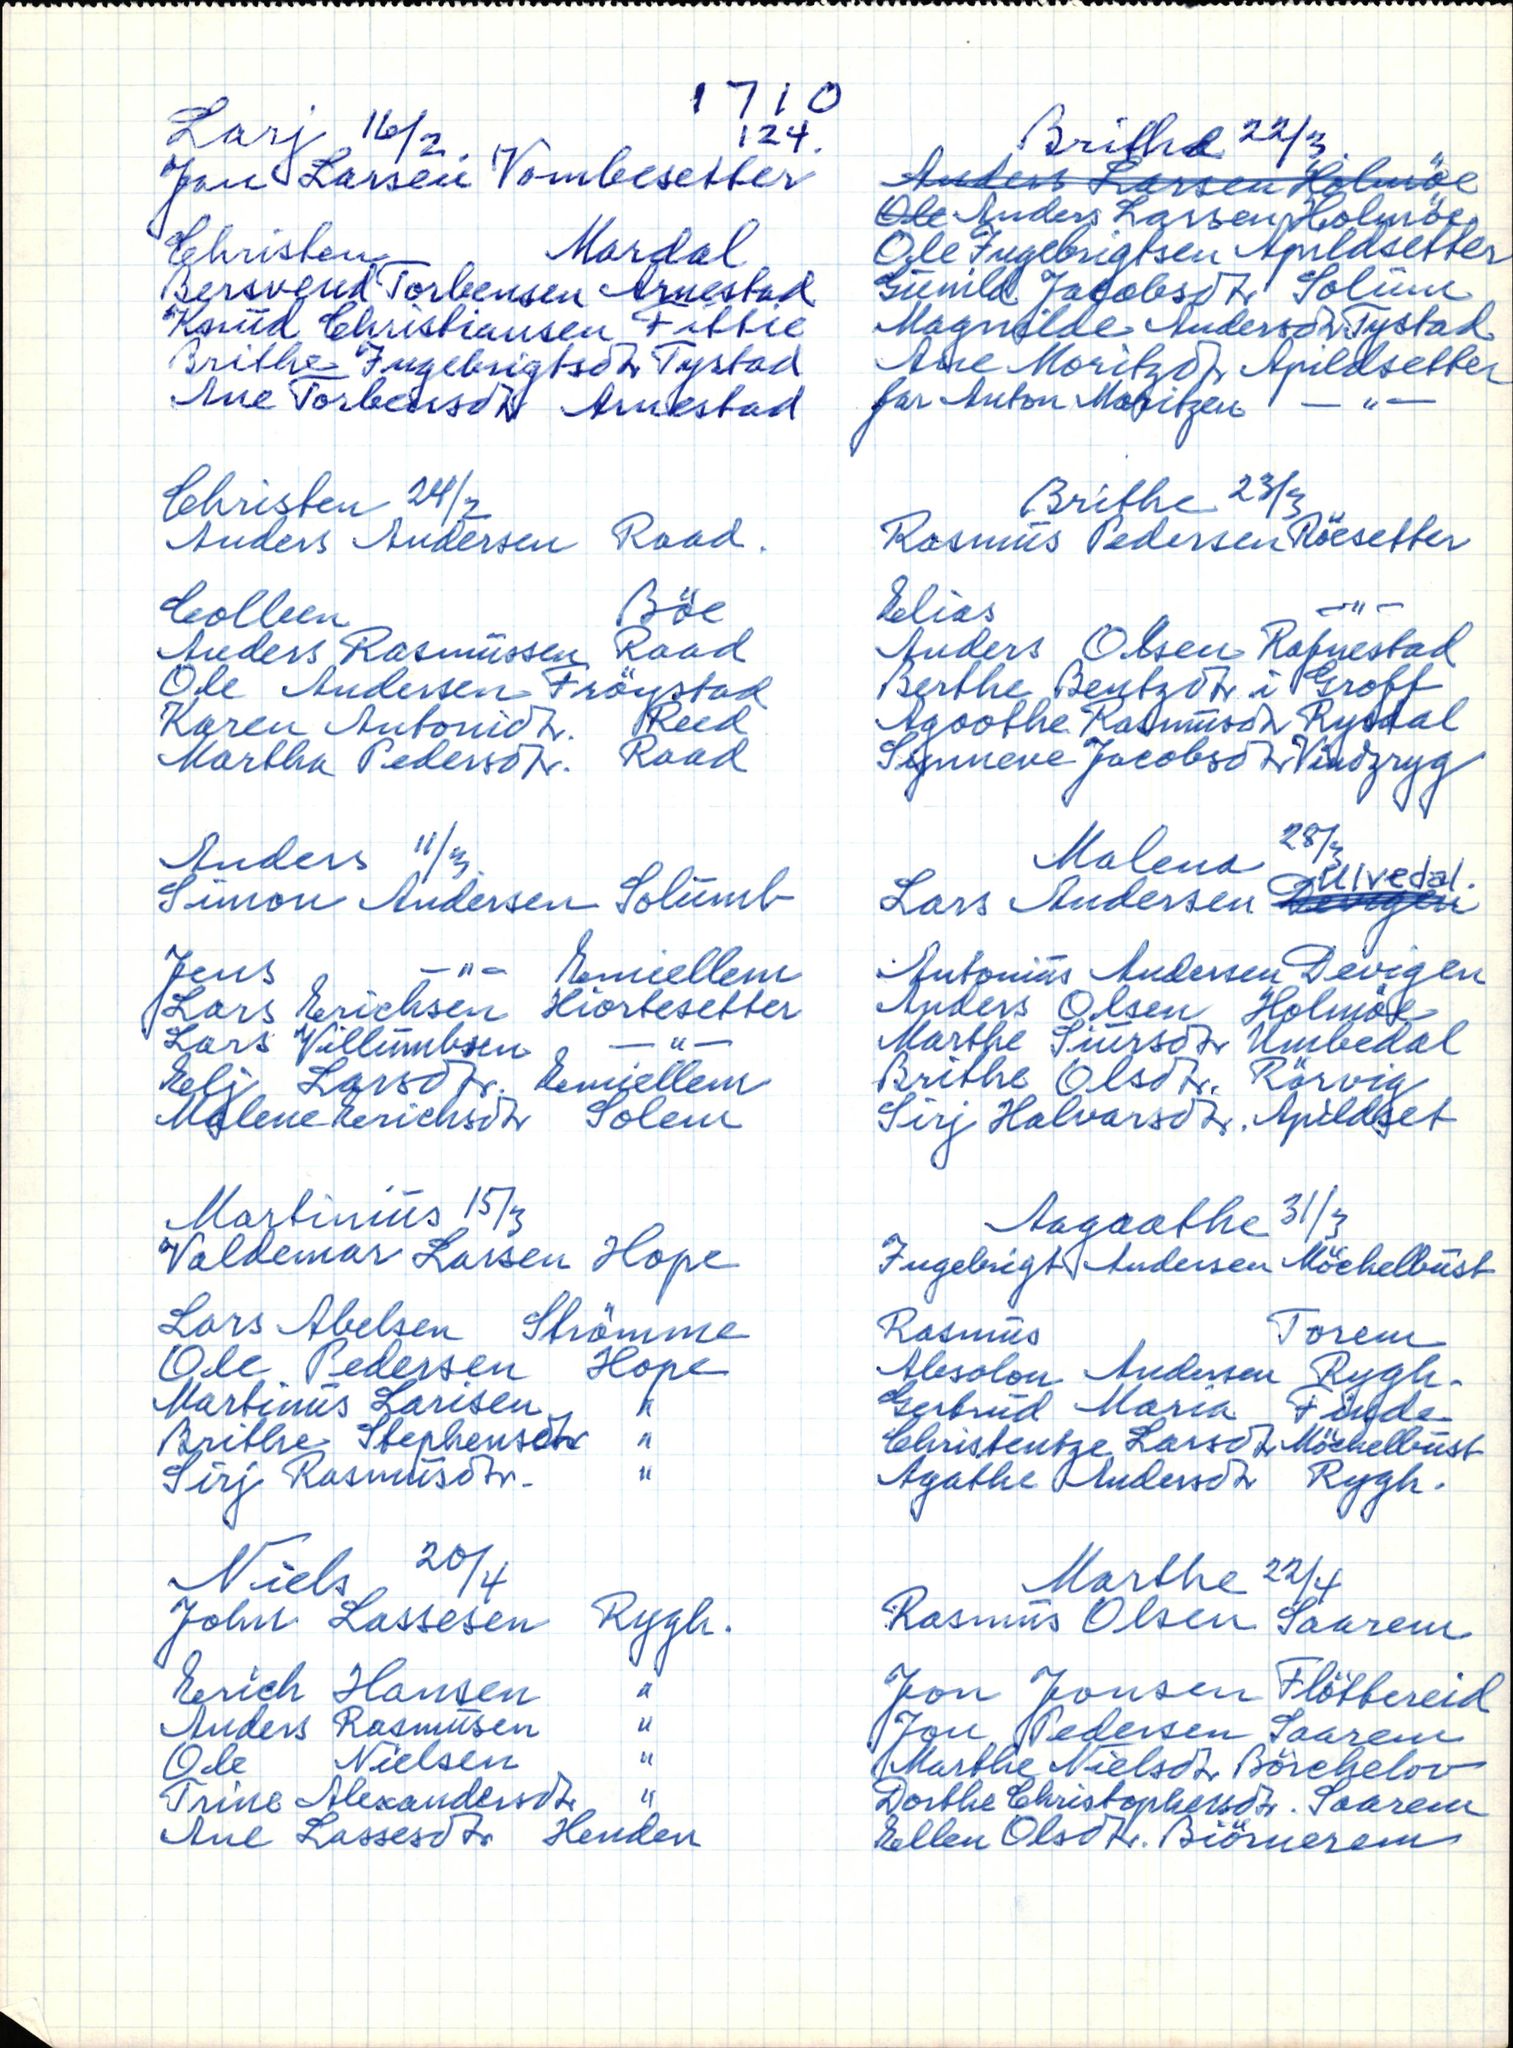 1710
124.
Larj 16/2.
Jon Larsen Vombesetter
Christen Mardal
Bersvend Torbensen Arnestad
Knüd Christiansen Fittie
Brithe Ingebrigtsdtr Tystad
Ane Torbensdtr Arnestad
Christen 24/2
Anders Andersen Raad.
Colleen Böe
Anders Rasmüssen Raad
Ole Andersen Fröystad
Karen Antonidtr. Reed
Martha Pedersdtr. Raad
Anders 11/3.
Simon Andersen Solümb
Jens —"— Emiellem
Lars Erichsen Hiortesetter
Lars Villümbsen —"—
Elj Larsdtr. Emiellem
Malene Erichsdtr Solem
Martinüs 15/3
Valdemar Larsen Hope
Lars Abelsen Strömme
Ole Pedersen Hope
Martinüs Larisen "
Brithe Stephensdtr "
Sirj Rasmüsdtr. "
Niels 20/4
John Lassesen Rygh.
Erich Hansen "
Anders Rasmüsen "
Ole Nielsen "
Trine Alexandersdtr "
Ane Lassesdtr Henden
Brithe 22/3.
Anders Larsen Holmöe
Ole Anders Larsen Holmöe
Ole Ingebrigtsen Apildsetter
Günild Jacobsdtr Solüm
Magnilde Andersdtr Tystad
Ane Moritzdtr Apildsetter
far Anton Moritzen —"—
Brithe 23/3
Rasmüs Pedersen Röesetter
Elias —"—
Anders Olsen Rafnestad
Berthe Bentzdtr i Groff
Agoothe Rasmüsdtr Rysdal
Synneve Jacobsdtr Vindzryg
Malena 28/3
Ulvedal.
Lars Andersen Devigen
Antoniüs Andersen Devigen
Anders Olsen Holmöe
Marthe Siürsdtr Umbedal
Brithe Olsdtr. Rörvig
Sirj Halvarsdtr. Apildset
Aagaathe 31/3
Ingebrigt Andersen Möchelbüst
Rasmüs Torem
Absolon Andersen Rygh.
Gertrüd Maria Finde
Christentze Larsdtr Möchelbüst
Agathe Andersdtr Rygh.
Marthe 22/4
Rasmüs Olsen Saarem
Jon Jonsen Flötbereid
Jon Pedersen Saarem
Marthe Nielsdtr Börchelov
Dorthe Christophersdtr. Saarem
Ellen Olsdtr. Biörnerem